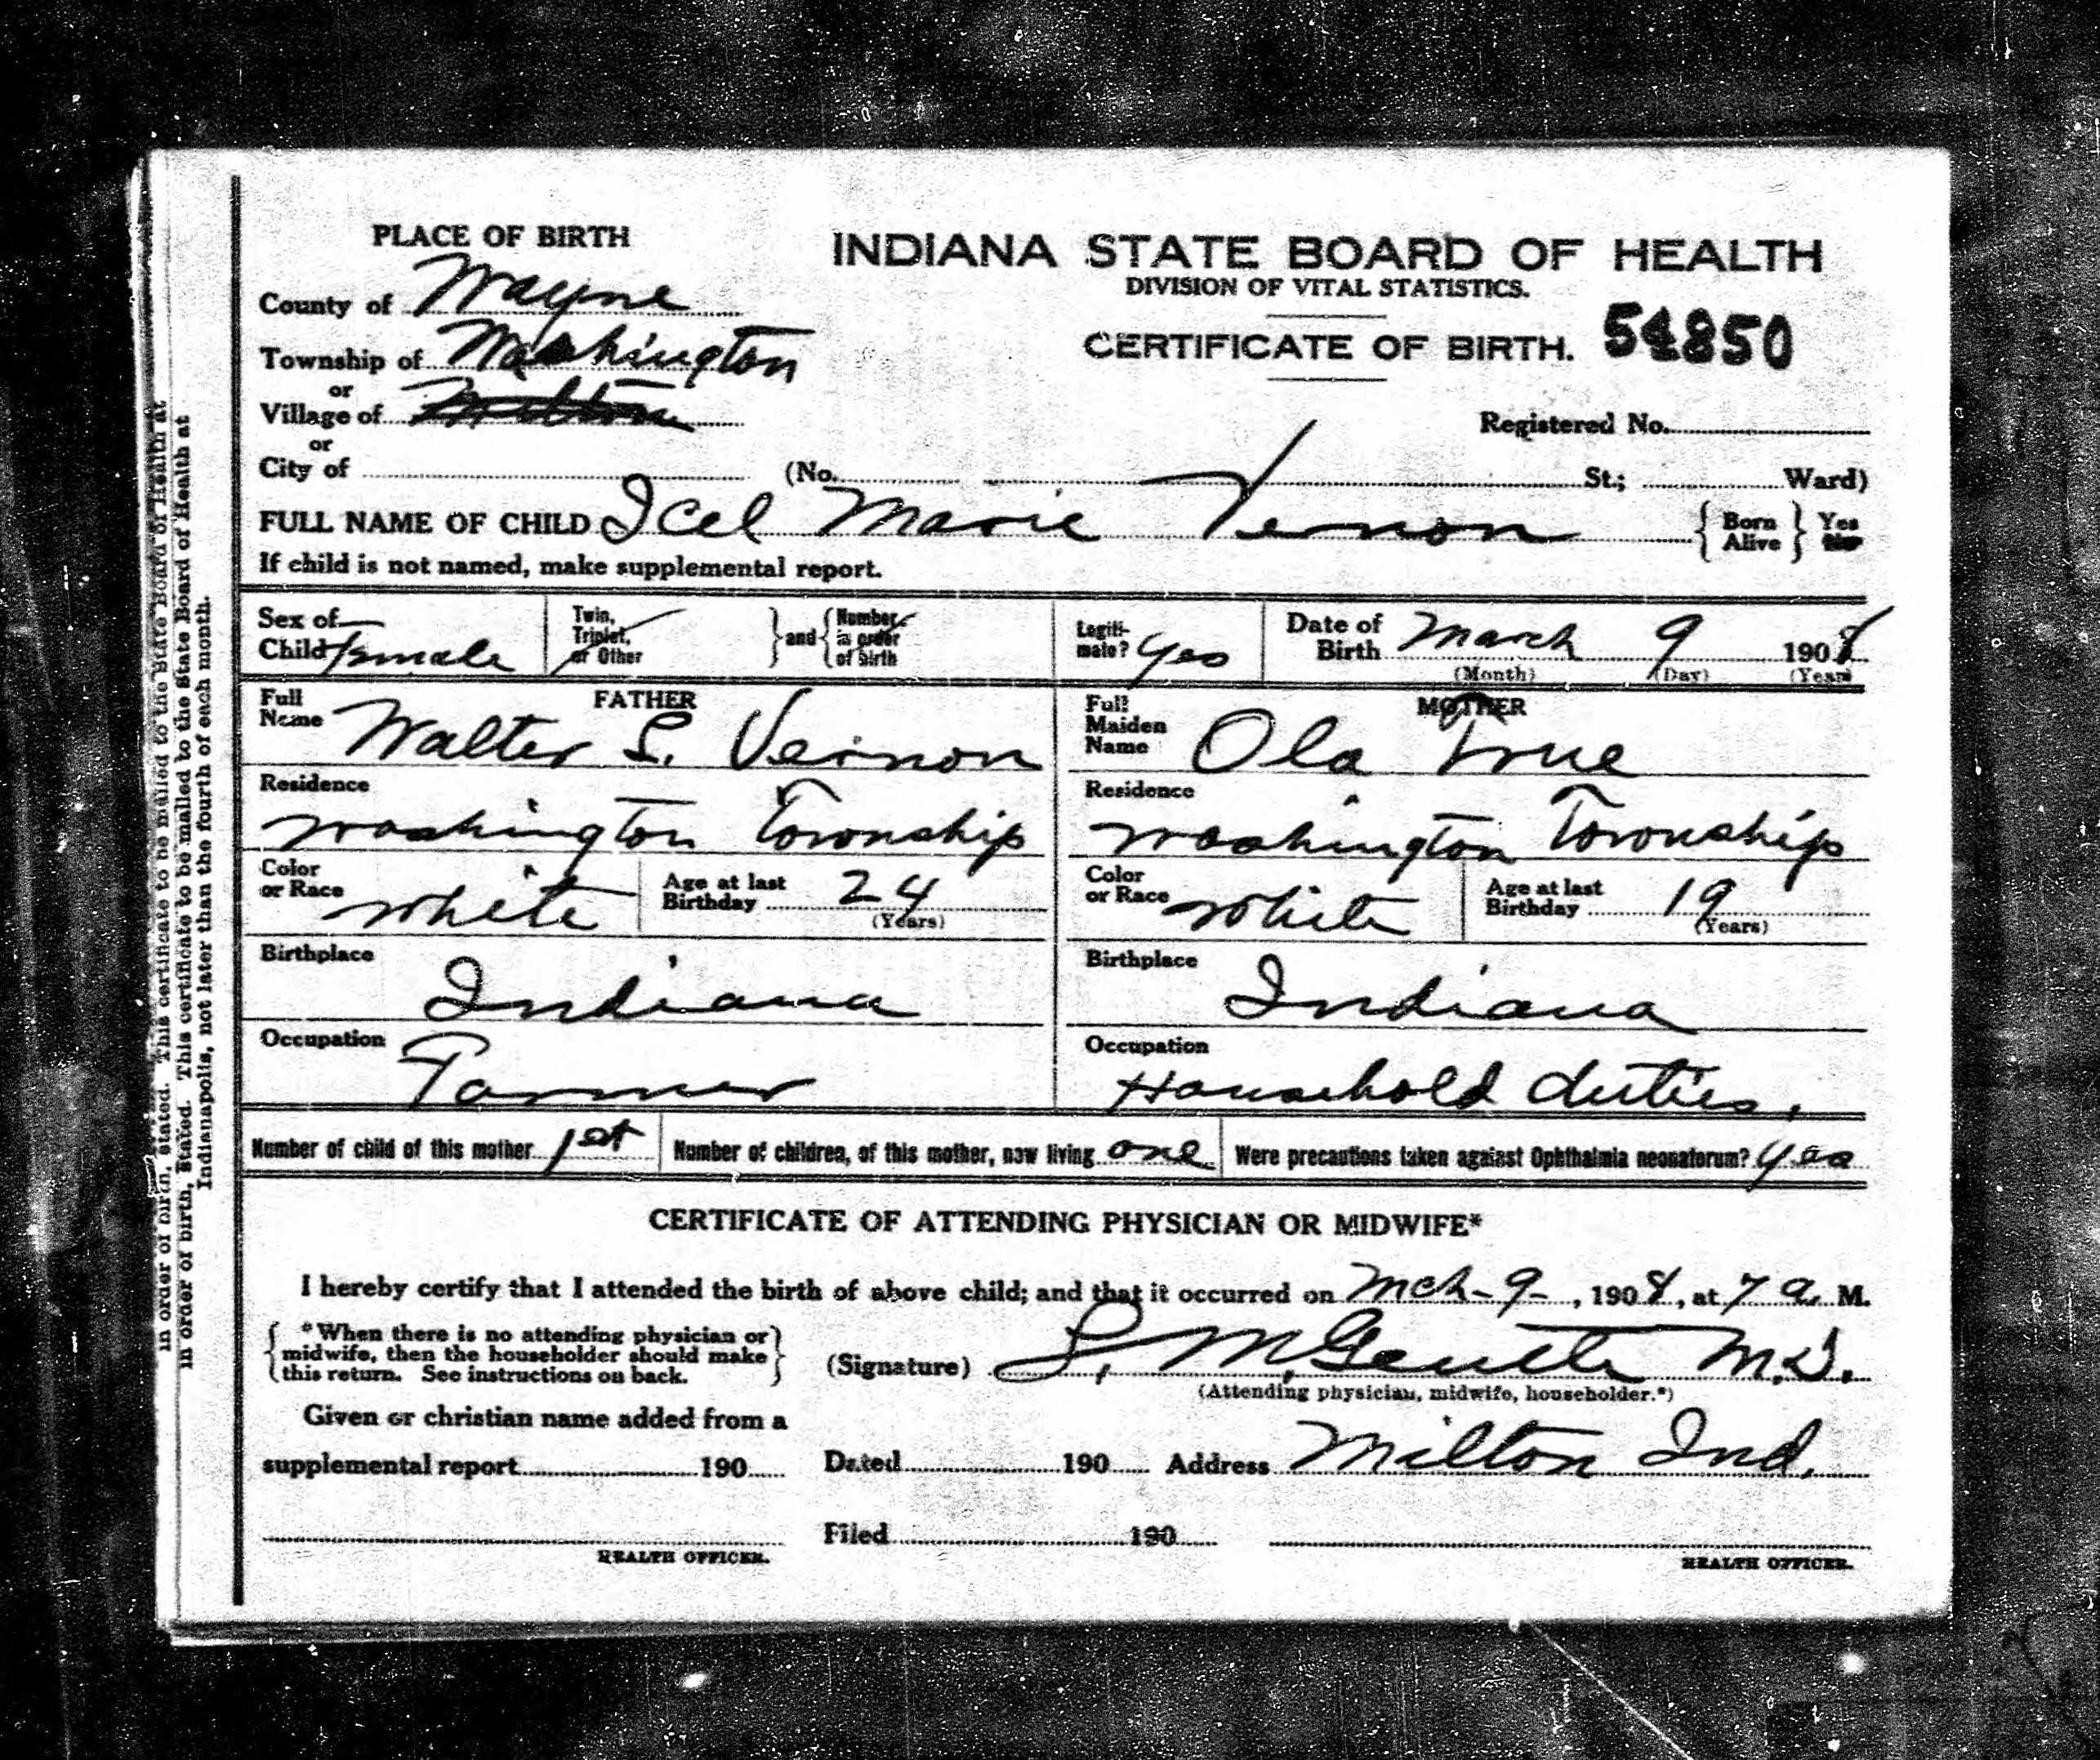 PLACE OF BIRTH
INDIANA STATE BOARD OF HEALTH
DIVISION OF VITAL STATISTICS.
CERTIFICATE OF BIRTH. 54850
County of Wayne
Township of Washington
or
Village of Milton
or
City of
Registered No.
(No. St.; Ward)
FULL NAME OF CHILD Icel Marie Vernon { Born Alive } Yes
If child is not named, make supplemental report.
Sex of Child female
Twin, Triplet, or Other } and { Number in order of birth
Legiti-mate? Yes
Date of Birth March 9 1908
(Month) (Day) (Year)
FATHER
Full Name Walter S. Vernon
Residence
Washington Township
Color or Race White
Age at last Birthday 24
(Years)
Birthplace
Indiana
Occupation
Farmer
MOTHER
Full Maiden Name Ola True
Residence
Washington Township
Color or Race White
Age at last Birthday 19
(Years)
Birthplace
Indiana
Occupation
Household duties.
Number of child of this mother 1st
Number of children, of this mother, now living one
Were precautions taken against Ophthalmia neonatorum? Yes
CERTIFICATE OF ATTENDING PHYSICIAN OR MIDWIFE*
I hereby certify that I attended the birth of above child; and that it occurred on Mch - 9 -, 1908, at 7 a. M.
{ *When there is no attending physician or
midwife, then the householder should make
this return. See instructions on back. }
(Signature) M.D.
(Attending physician, midwife, householder.*)
Given or christian name added from a
supplemental report 190
Dated 190 Address Milton Ind.
Filed 190
HEALTH OFFICER.
HEALTH OFFICER.
in order of birth, stated. This certificate to be mailed to the State Board of Health at
in order of birth, stated. This certificate to be mailed to the State Board of Health at
Indianapolis, not later than the fourth of each month.